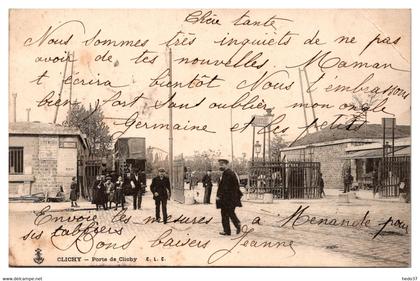 Chère tante
Nous sommes très inquiets de ne pas
avoir de tes nouvelles, Maman
t'écrira bientôt Nous t'embrassons
bien fort sans oublier mon oncle
Germaine et les petits
Envoie les mesures à pour
ses tabliers
Bons baisers Jeanne
CLICHY - Porte de Clichy E. L. D.